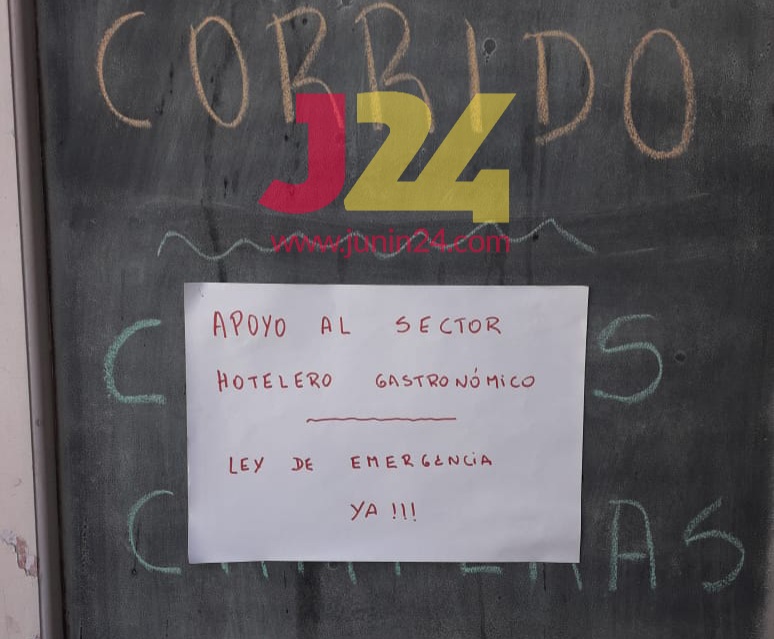 CORRIDO
J24
www.junin24.com
APOYO AL SECTOR
HOTELERO GASTRONÓMICO
LEY DE EMERGENCIA
YA!!!